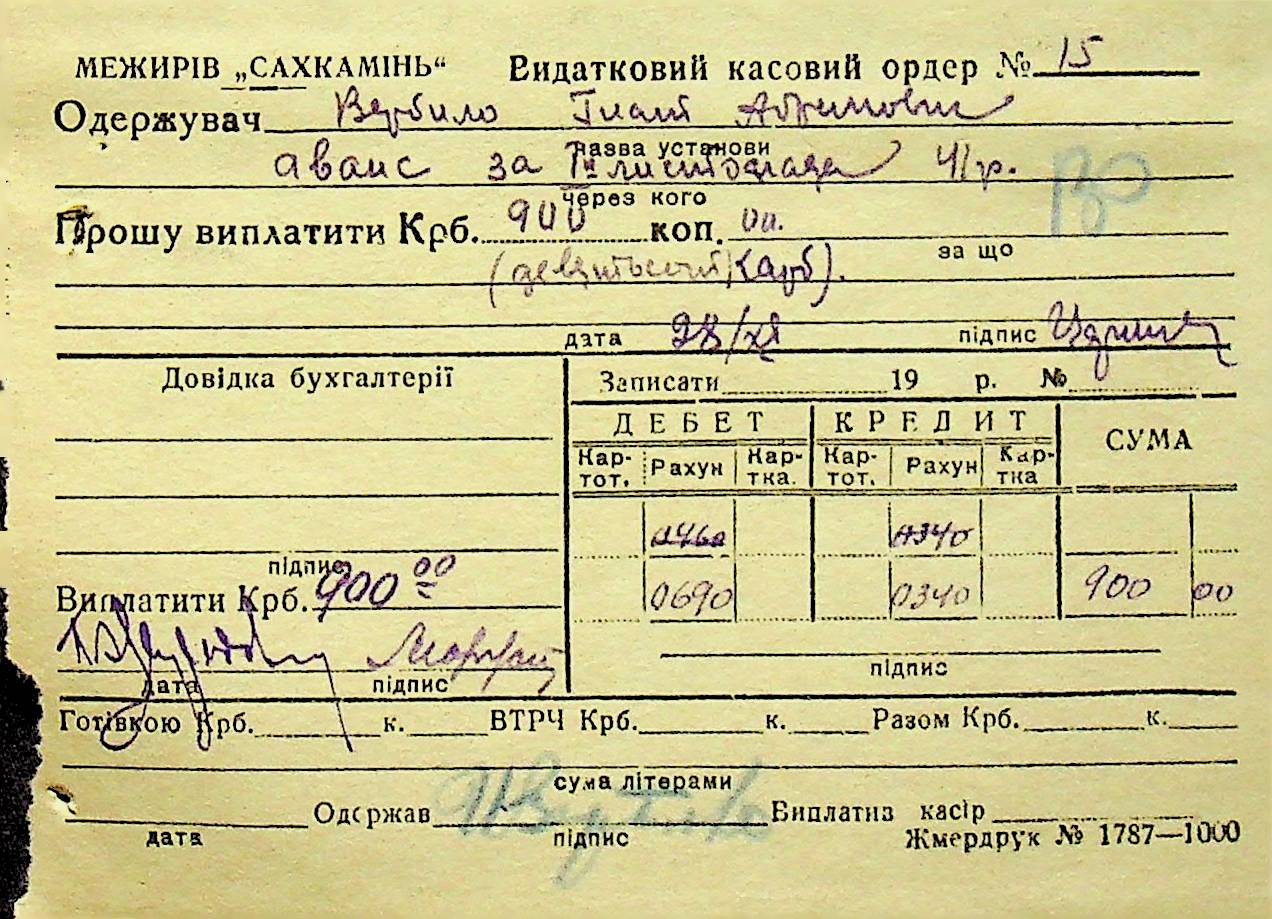 МЕЖИРІВ „САХКАМІНЬ“ Видатковий касовий ордер № 15
Одержувач Вербило Гнат
назва установи
аванс за листопада 41 р.
через кого
Прошу виплатити Крб. 900 коп. 00.
за що
(девятьсот карб).
дата 28/XI підпис
Довідка бухгалтерії
Записати 19 р. №
ДЕБЕТ КРЕДИТ СУМА
Кар-тот. Рахун Кар-тка. Кар-тот. Рахун Кар-тка
0460 0340
0690 0340 900 00
підпис
Виплатити Крб. 900 00
дата підпис
підпис
Готівкою Крб. к. ВТРЧ Крб. к. Разом Крб. к.
сума літерами
Одержав Виплатив касір
дата підпис
Жмердрук № 1787—1000